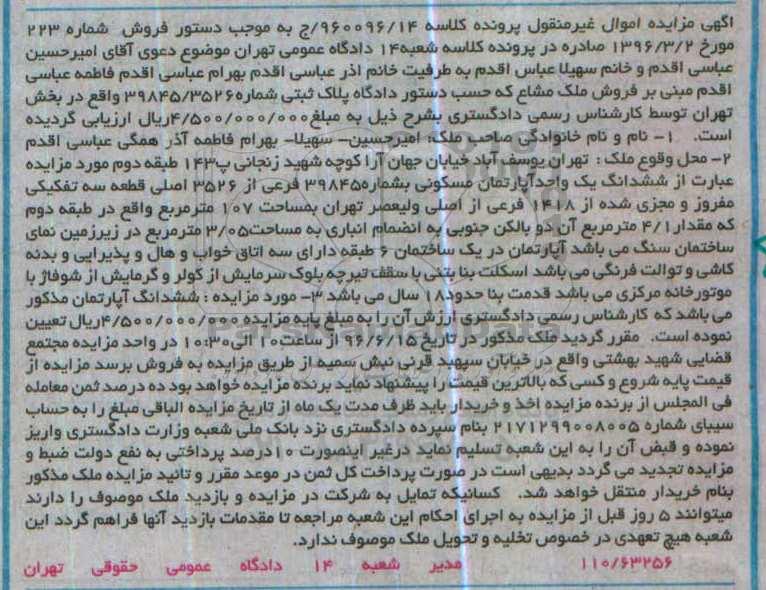 آگهی مزایده اموال غیرمنقول پرونده کلاسه ۹۶۰۰۹۶/۱۴/ج به موجب دستور فروش شماره ۲۲۳
مورخ ۱۳۹۶/۳/۲ صادره در پرونده کلاسه شعبه۱۴ دادگاه عمومی تهران موضوع دعوی آقای امیرحسین
عباسی اقدم و خانم سهیلا عباس اقدم به طرفیت خانم اذر عباسی اقدم بهرام عباسی اقدم فاطمه عباسی
اقدم مبنی بر فروش ملک مشاع که حسب دستور دادگاه پلاک ثبتی شماره۳۹۸۴۵/۳۵۲۶ واقع در بخش
تهران توسط کارشناس رسمی دادگستری بشرح ذیل به مبلغ۴/۵۰۰/۰۰۰/۰۰۰ریال ارزیابی گردیده
است. ۱- نام و نام خانوادگی صاحب ملک: امیرحسین- سهیلا- بهرام فاطمه آذر همگی عباسی اقدم
۲- محل وقوع ملک : تهران یوسف آباد خیابان جهان آرا کوچه شهید زنجانی پ۱۴۳ طبقه دوم مورد مزایده
عبارت از ششدانگ یک واحدآپارتمان مسکونی بشماره۳۹۸۴۵ فرعی از ۳۵۲۶ اصلی قطعه سه تفکیکی
مفروز و مجزی شده از ۱۴۱۸ فرعی از اصلی ولیعصر تهران بمساحت ۱۰۷ مترمربع واقع در طبقه دوم
که مقدار۴/۱ مترمربع آن دو بالکن جنوبی به انضمام انباری به مساحت۳/۰۵ مترمربع در زیرزمین نمای
ساختمان سنگ می باشد آپارتمان در یک ساختمان ۶ طبقه دارای سه اتاق خواب و هال و پذیرایی و بدنه
کاشی و توالت فرنگی می باشد اسکلت بنا بتنی با سقف تیرچه بلوک سرمایش از کولر و گرمایش از شوفاژ با
موتورخانه مرکزی می باشد قدمت بنا حدود۱۸ سال می باشد ۳- مورد مزایده : ششدانگ آپارتمان مذکور
می باشد که کارشناس رسمی دادگستری ارزش آن را به مبلغ پایه مزایده ۴/۵۰۰/۰۰۰/۰۰۰ریال تعیین
نموده است. مقرر گردید ملک مذکور در تاریخ ۹۶/۶/۱۵ از ساعت۱۰ الی۱۰:۳۰ در واحد مزایده مجتمع
قضایی شهید بهشتی واقع در خیابان سپهبد قرنی نبش سمیه از طریق مزایده به فروش برسد مزایده از
قیمت پایه شروع و کسی که بالاترین قیمت را پیشنهاد نماید برنده مزایده خواهد بود ده درصد ثمن معامله
فی المجلس از برنده مزایده اخذ و خریدار باید ظرف مدت یک ماه از تاریخ مزایده الباقی مبلغ را به حساب
سیبای شماره ۲۱۷۱۲۹۹۰۰۸۰۰۵ بنام سپرده دادگستری نزد بانک ملی شعبه وزارت دادگستری واریز
نموده و قبض آن را به این شعبه تسلیم نماید درغیر اینصورت ۱۰درصد پرداختی به نفع دولت ضبط و
مزایده تجدید می گردد بدیهی است در صورت پرداخت کل ثمن در موعد مقرر و تائید مزایده ملک مذکور
بنام خریدار منتقل خواهد شد. کسانیکه تمایل به شرکت در مزایده و بازدید ملک موصوف را دارند
میتوانند ۵ روز قبل از مزایده به اجرای احکام این شعبه مراجعه تا مقدمات بازدید آنها فراهم گردد این
شعبه هیچ تعهدی در خصوص تخلیه و تحویل ملک موصوف ندارد.
۱۱۰/۶۳۲۵۶ مدیر شعبه ۱۴ دادگاه عمومی حقوقی تهران